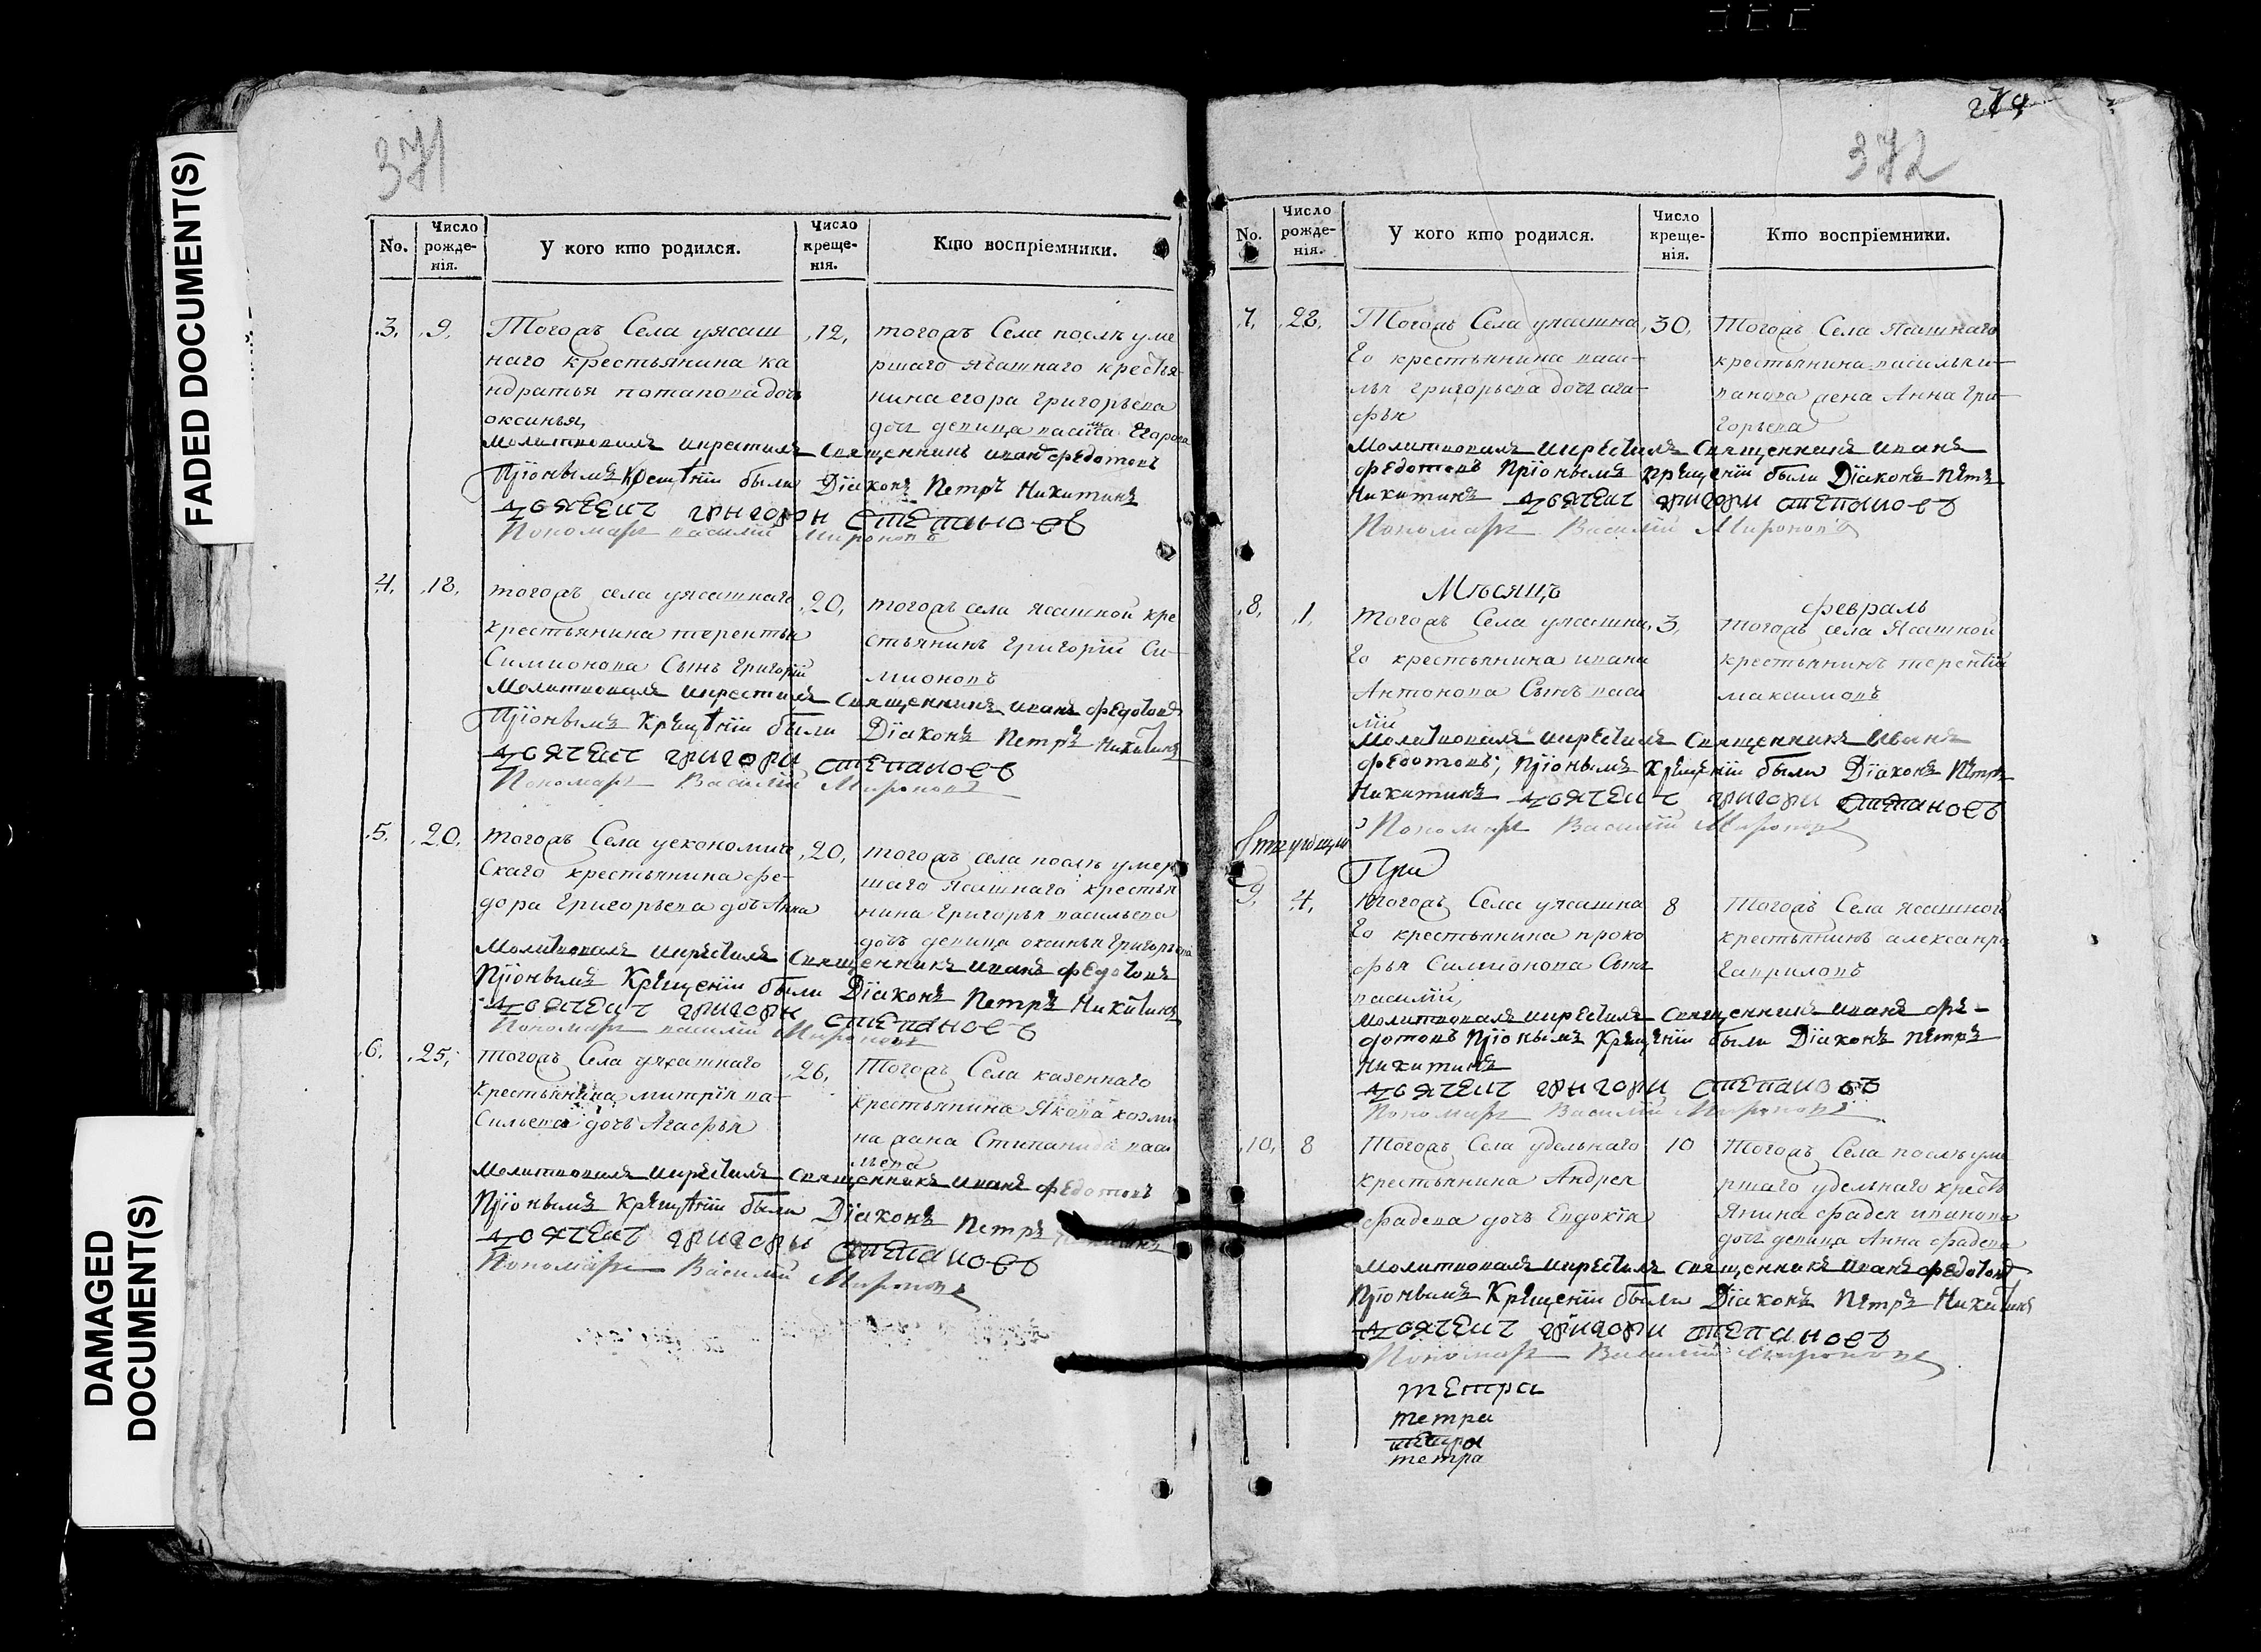 FADED DOCUMENT(S)
DAMAGED
DOCUMENT(S)
371
No.
Число рожде-нія.
У кого кто родился.
Число креще-нія.
Кто воспріемники.
.3.
.9.
Тогожъ Села уясаш
наго крестьянина ка
ндратья потапова дочь
оксинья,
.12.
тогожъ Села послѣ уме
ршаго ясашнаго крестья
нина егора григорьева
дочь девица Егорова
Молитвовалъ икрестилъ Священникъ иванъ федотовъ
Приономъ Крещеніи были Діаконъ Петръ Никитинъ
дьячекъ григори степановъ
Пономарь василій Мироновъ
.4.
.18.
тогожъ села уясашнаго
крестьянина терентья
Симионова Сынъ григорій
.20.
тогожъ села ясашной кре
стьянинъ григорій Си-
мионовъ
Молитвовалъ икрестилъ Священникъ иванъ федотовъ
Приономъ Крещеніи были Діаконъ Петръ Никитинъ
дьячекъ григори степановъ
Пономарь Василій Мироновъ
.5.
.20.
тогожъ Села уекономиче
Скаго крестьянина фе-
дора григорьева дочь Анна
.20.
тогожъ села послѣ умер
шаго ясашнаго крестья
нина григорья васильева
дочь девица оксинья григорьева
Молитвовалъ икрестилъ Священникъ иванъ федотовъ
Приономъ Крещеніи были Діаконъ Петръ Никитинъ
дьячекъ григори степановъ
Пономарь василій Мироновъ
.6.
.25.
тогожъ Села уясашнаго
крестьянина митрія ва-
Сильева дочь Агафья
.26.
Тогожъ Села казеннаго
крестьянина Якова козми
на жена Стипанида васи
льева
Молитвовалъ икрестилъ Священникъ иванъ федотовъ
Приономъ Крещеніи были Діаконъ Петръ
дьячекъ григори степановъ
Пономарь Василій Мироновъ
372
No.
Число рожде-нія.
У кого кто родился.
Число креще-нія.
Кто воспріемники.
.7.
.28.
Тогожъ Села уясашна
го крестьянина васи-
лья григорьева дочь ага-
фья
.30.
Тогожъ Села ясашнаго
крестьянина василья и-
ванова жена Анна гри-
горьева
Молитвовалъ икрестилъ Священникъ иванъ
федотовъ Приономъ крещеніи были Діаконъ Петръ
Никитинъ дьячекъ григори степановъ
Пономарь Василій Мироновъ
Мѣсяцъ
февраль
.8.
.1.
Тогожъ Села уясашна
го крестьянина ивана
Антонова Сынъ васи
лій
.3.
тогожъ села Ясашной
крестьянинъ терентій
максимовъ
Молитвовалъ икрестилъ Священникъ Иванъ
федотовъ, Приономъ Крещеніи были Діаконъ Петръ
Никитинъ дьячекъ григори степановъ
Пономарь Василій Мироновъ
При
9.
.4.
Тогожъ Села уясашна
го крестьянина проко
фья Симионова Сынъ
василій,
8
Тогожъ Села ясашной
крестьянинъ алексанръ
гавриловъ
Молитвовалъ икрестилъ Священникъ иванъ фе-
дотовъ Приономъ Крещеніи были Діаконъ Петръ
Никитинъ
дьячекъ григори степановъ
Пономарь Василій Мироновъ
.10.
8
Тогожъ Села удельнаго
крестьянина Андрея
фадева дочь Евдокія
10
Тогожъ Села послѣ уме
ршаго удельнаго кресть
янина фадея иванова
дочь девица Анна фадева
Молитвовалъ икрестилъ Священникъ иванъ федотовъ
Приономъ Крещеніи были Діаконъ Петръ Никитинъ
дьячекъ григори степановъ
Пономарь Василій Мироновъ
тетра
тетра
тетра
тетра